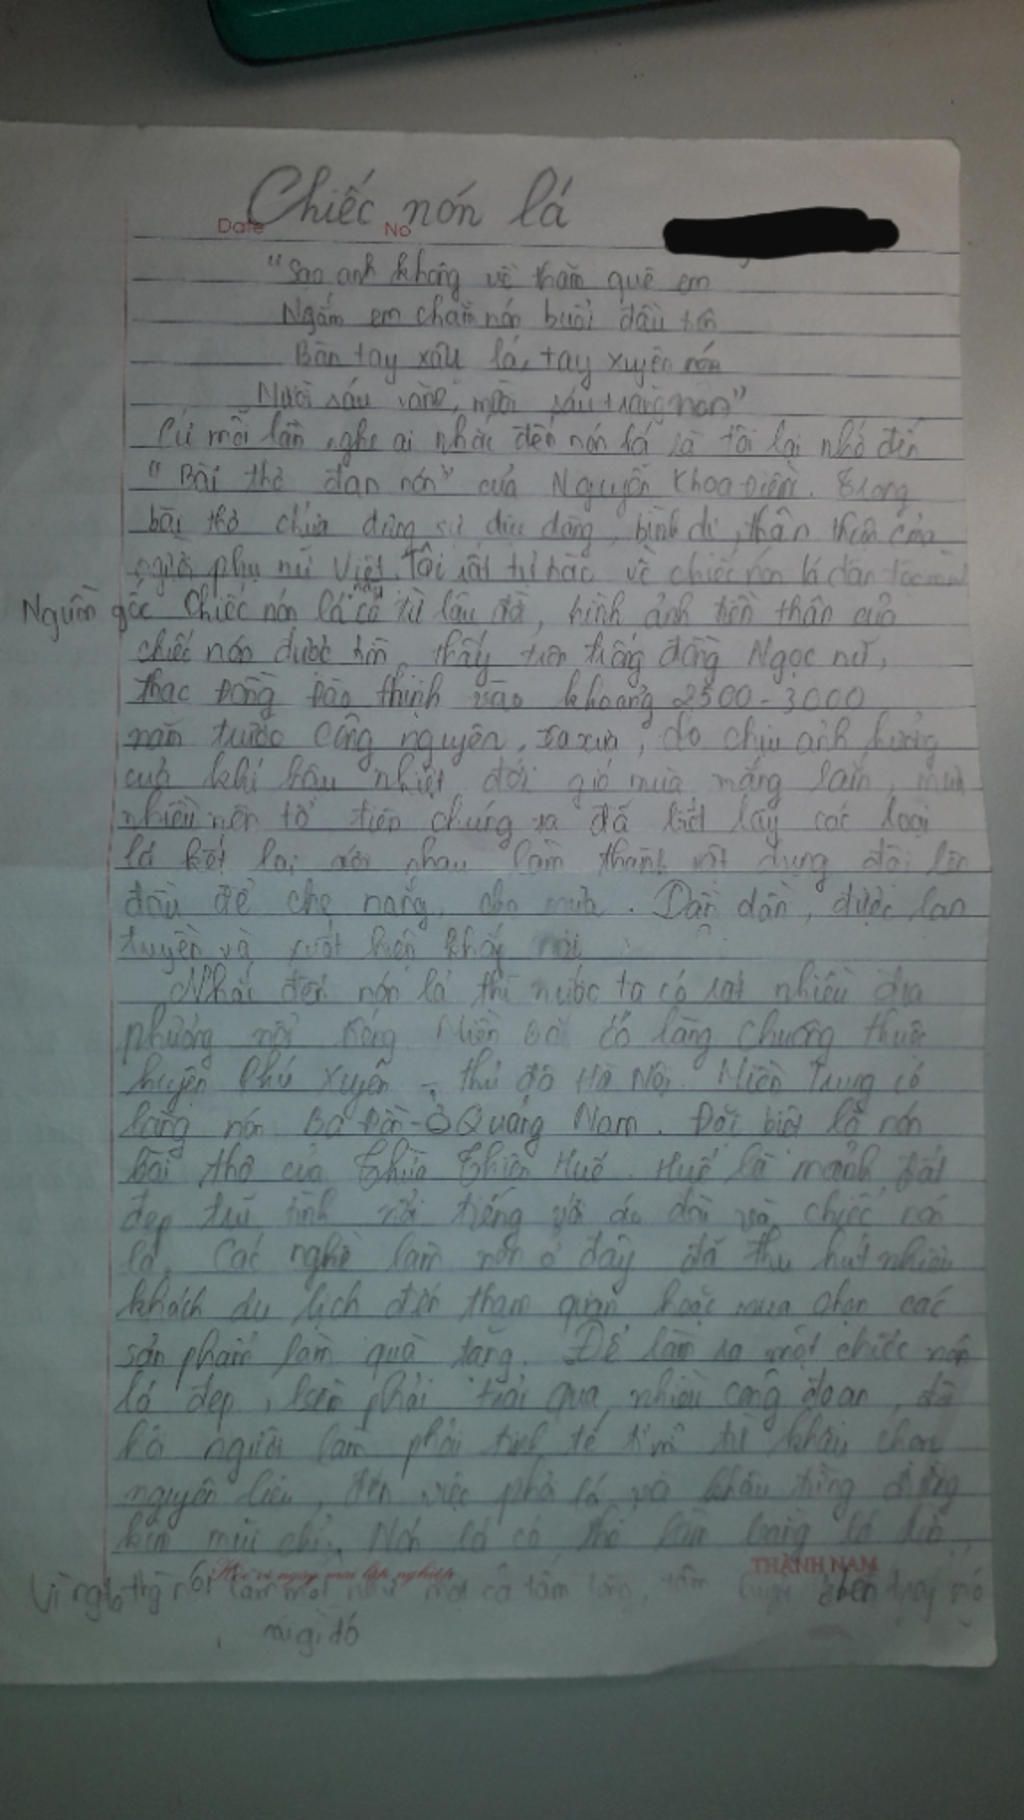 Chiếc nón lá
Date No
"Sao anh không về thăm quê em
Ngắm em chằm nón buổi đầu tiên
Bàn tay xây lá, tay xuyên nón
Mười sáu vành, mười sáu trăng non"
Cứ mỗi lần nghe ai nhắc đến nón lá là tôi lại nhớ đến
"Bài thơ đan nón" của Nguyễn Khoa Điềm. Trong
bài thơ chứa đựng sự dịu dàng, bình dị, thân thiện của
người phụ nữ Việt. Tôi rất tự hào về chiếc nón lá dân tộc
Nguồn gốc Chiếc nón lá này có từ lâu đời, hình ảnh tiền thân của
chiếc nón được tìm thấy trên trống đồng Ngọc nữ,
thạc Đồng Đào thịnh vào khoảng 2500-3000
năm trước Công nguyên, xa xưa, do chịu ảnh hưởng
của khí hậu nhiệt đới gió mùa nắng lắm, mưa
nhiều nên tổ tiên chúng ta đã biết lấy các loại
lá kết lại với nhau làm thành vật dụng đội lên
đầu để che nắng, che mưa. Dần dần, được lan
truyền và xuất hiện khắp nơi
Nhắc đến nón lá thì nước ta có rất nhiều địa
phương nổi tiếng Miền Bắc có làng chuông thuộc
huyện Phú Xuyên - thủ đô Hà Nội. Miền Trung có
làng nón Ba Đồn - Ở Quảng Nam. Đặc biệt là nón
bài thơ của Thừa Thiên Huế. Huế là mảnh đất
đẹp trữ tình nổi tiếng với áo dài và chiếc nón
lá. Các nghề làm nón ở đây đã thu hút nhiều
khách du lịch đến tham quan hoặc mua chọn các
sản phẩm làm quà tặng. Để làm ra một chiếc nón
lá đẹp, phải trải qua nhiều công đoạn, đòi
hỏi người làm phải tinh tế tỉ mỉ từ khâu chọn
nguyên liệu, đến việc phơi lá và khâu từng đường
kim mũi chỉ. Nón lá có thể làm bằng lá dừa,
THÀNH NAM
cả tấm lòng, tâm
cái gì đó